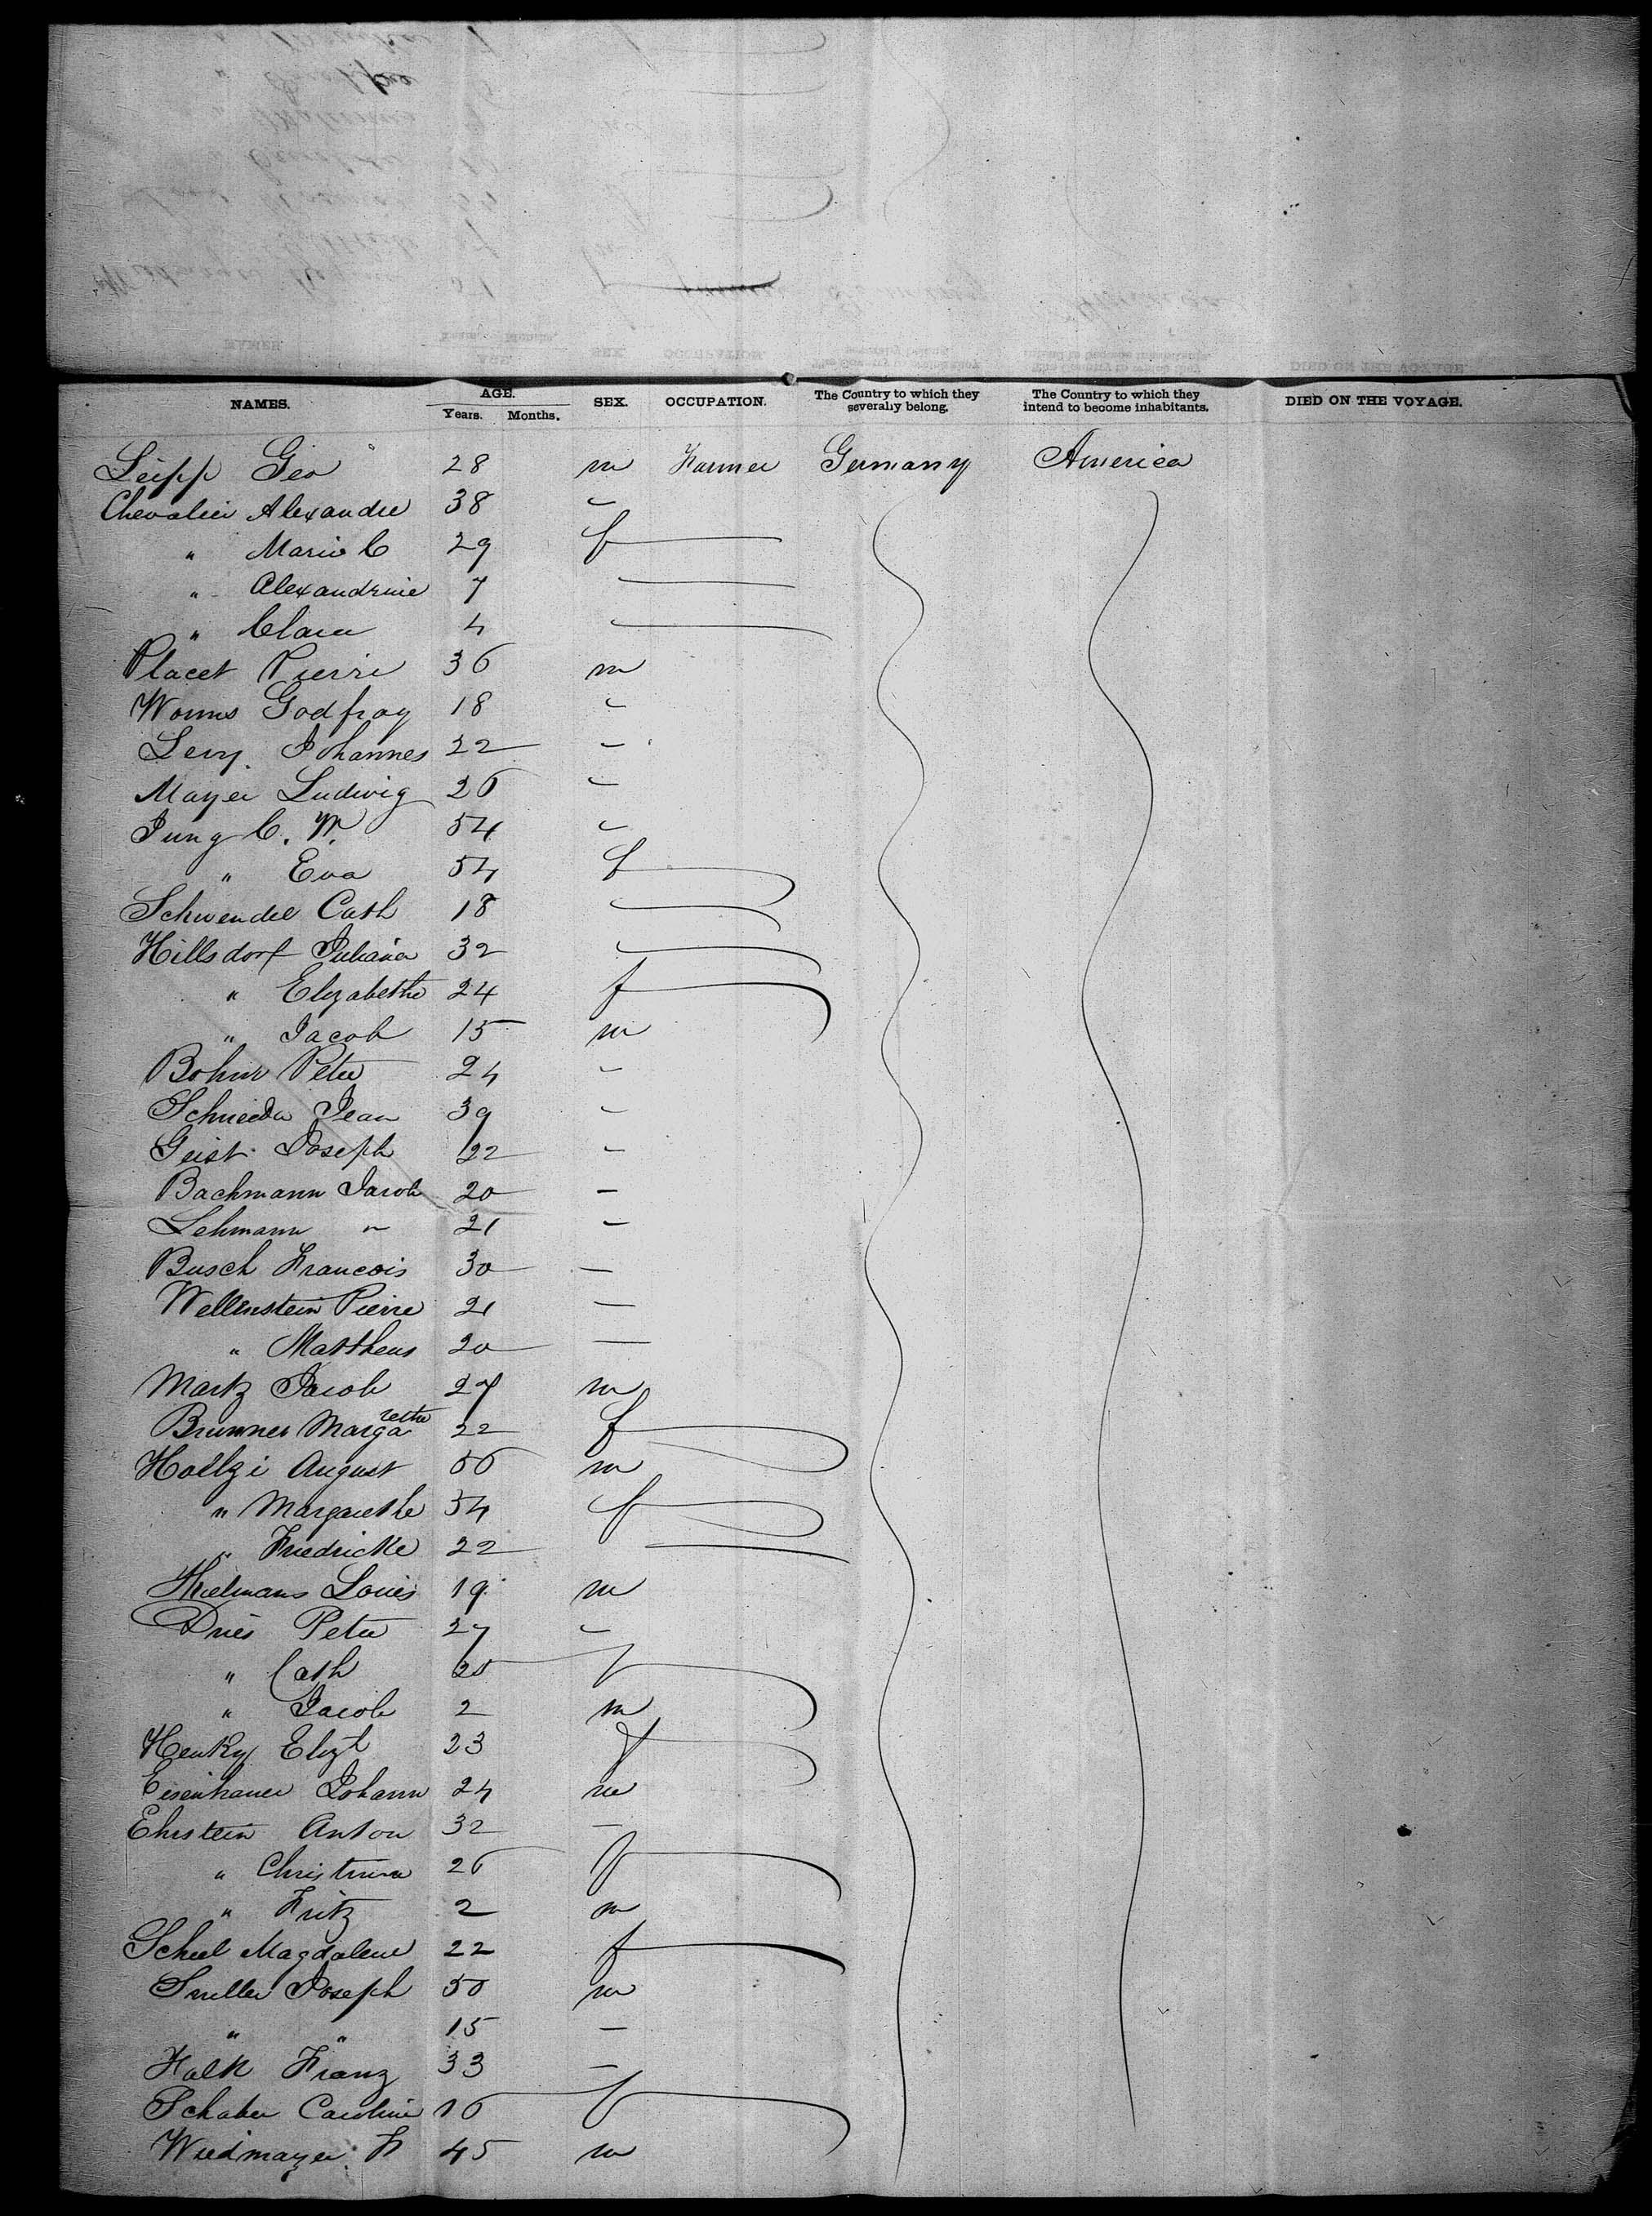 NAMES. AGE. Years. Months. SEX. OCCUPATION. The Country to which they severally belong. The Country to which they intend to become inhabitants. DIED ON THE VOYAGE.
Leipp Geo 28 m Farmer Germany America
Chevalier Alexandre 38 "
" Marie C 29 f
" Alexandrine 7
" Clara 4
Placet Pierre 36 m
Worms Godfray 18 "
Levy Johannes 22 "
Mayer Ludwig 26 "
Jung C. W. 54 "
" Eva 54 f
Schwendel Cath 18
Hillsdorf Juliana 32
" Elizabethe 24 f
" Jacob 15 m
Peter 24 "
Schneider Jean 39 "
Geist Joseph 22 "
Bachmann Jacob 20 "
Lehmann " 21 "
Busch Francois 30 "
Wellenstein Pierre 21 "
" Mattheus 20 "
Martz Jacob 27 m
Brunner Margarethe 22 f
August 56 m
" Margarethe 54 f
" Friedricke 22
Thielmans Louis 19 m
Dries Peter 27 "
" Cath 25 f
" Jacob 2 m
Henky Elizt 23 f
Eisenhauer Johann 24 m
Ehrstein Anton 32 "
" Christina 26 f
" Fritz 2 m
Scheel Magdalene 22 f
Joseph 50 m
" " 15 "
Falk Franz 33 "
Schaber Caroline 16 f
Wiedmayer F 45 m